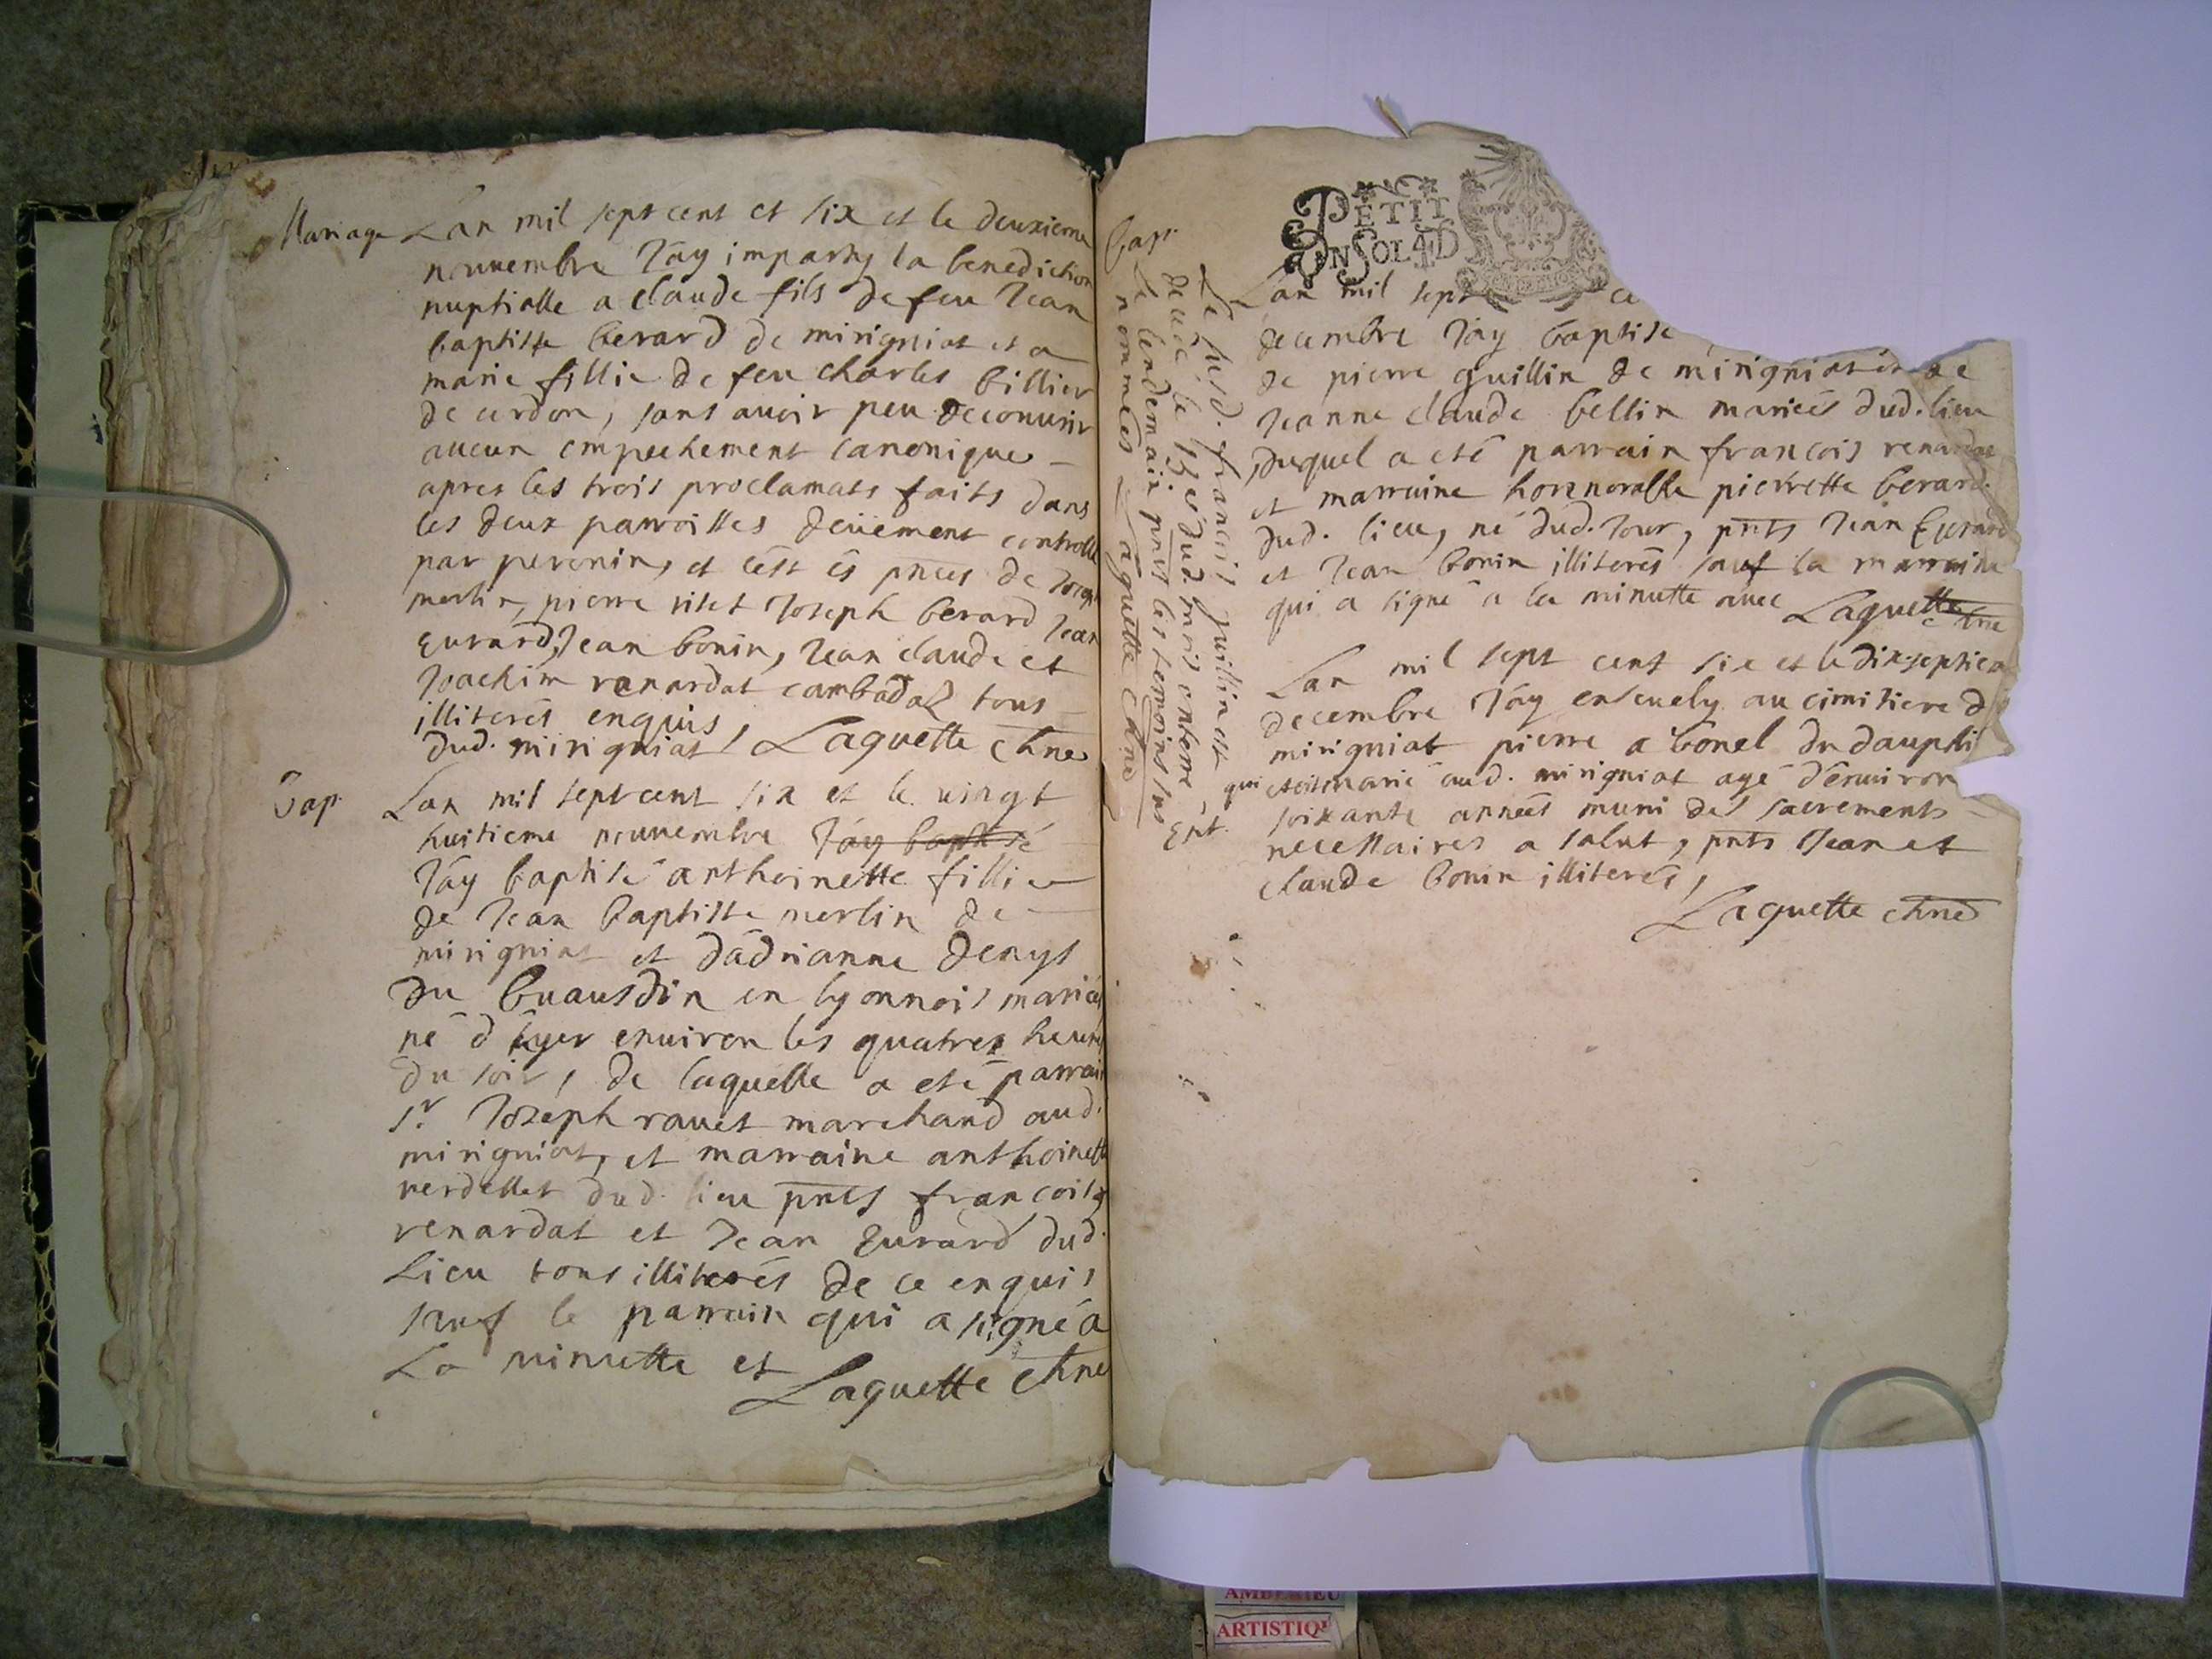 Mariage
L'an mil sept cent et six et le deuxieme
nouuembre J'ay imparty la benediction
nuptialle a claude fils de feu Jean
baptiste berard de mirigniat et a
marie fillie de feu charles billier
de cerdon, sans auoir peu decouurir
aucun empechement canonique
apres les trois proclamats faits dans
les deux parroisses deüement controllé
par peronin, et c'est és pnces de
merlin, pierre vitet Joseph berard Jean
Eurard, Jean bonin, Jean claude et
Joachim renardat cambadaz tous
illiterés enquis
dud. mirigniat, Laguette
Bap.
L'an mil sept cent six et le vingt
huitieme nouuembre J'ay baptisé
J'ay baptisé anthoinette fillie
de Jean baptiste merlin de
mirigniat et d'adrianne denys
du en lyonnois mariés
né d'hyer enuiron les quatres heures
du soir, de laquelle a eté parrain
Sr. Joseph rauet marchand aud.
mirigniat, et marraine anthoinette
verdellet dud. lieu pnts francois
renardat et Jean Eurard dud.
Lieu tous illiterés de ce enquis
sauf le parrain qui a signé a
La minutte et
Laguette
Bap.
PETIT
UN SOL 4 D
L'an mil sept
decembre J'ay baptisé
de pierre guillin de mirigniat et de
Jeanne claude bellin mariés dud. lieu
duquel a eté parrain francois renardat
et marraine honnorable pierrette berard
dud. lieu, né dud. Jour, pnts Jean Eurard
et Jean bonin illiterés sauf la marraine
qui a signé a la minutte auec Laguette
Le susd. francois guillin est
decede le 13 et dud. mois enterré
Le lendemain pnts les temoins sus
nommés Laguette
Ent.
L'an mil sept cent six et le dix-septieme
decembre J'ay enseuely au cimitiere de
mirigniat pierre abonel du dauphi
qui etoit marié aud. mirigniat agé d'enuiron
soixante années muni des sacrements
necessaires a salut, pnts Jean et
claude bonin illiterés,
Laguette
AMBERIEU
ARTISTIQU